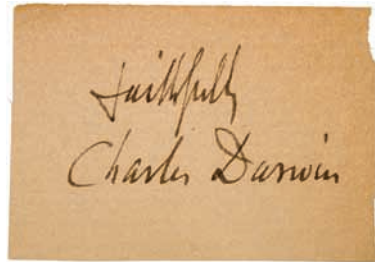 Faithfully
Charles Darwin